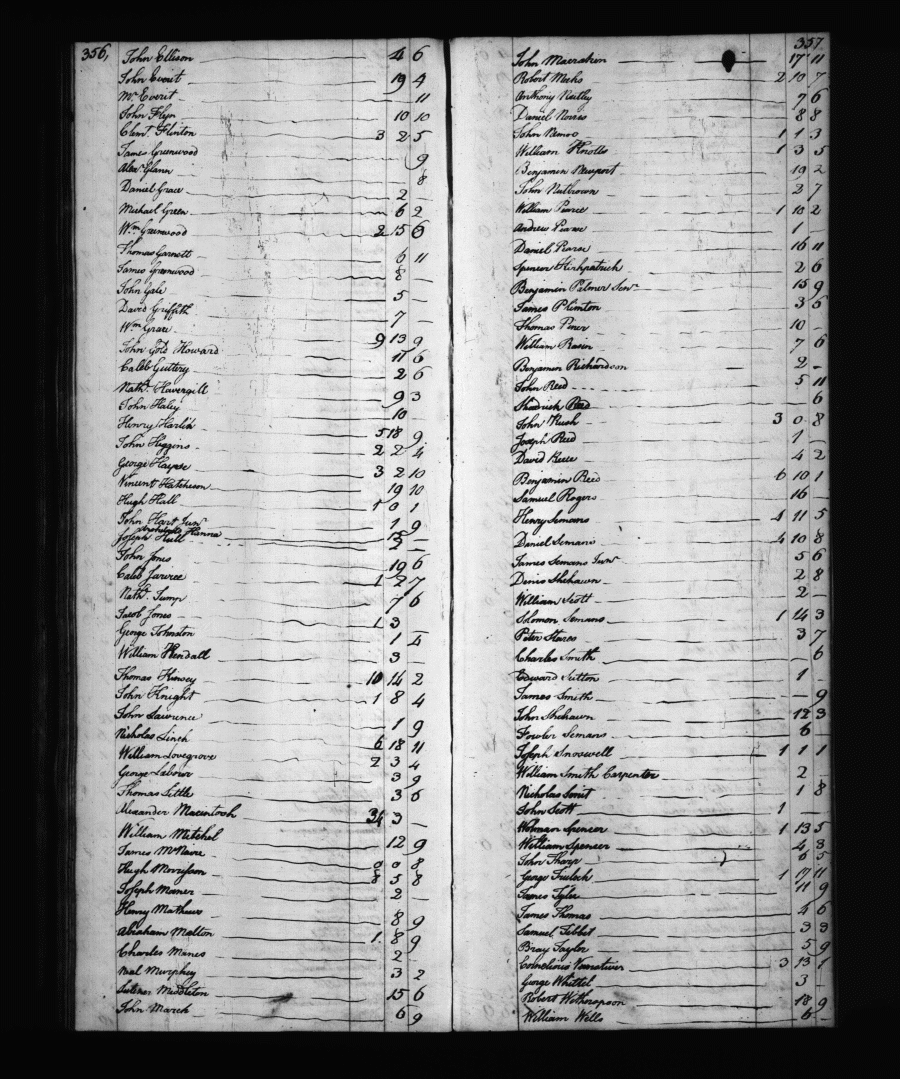 356,
John Ellison 4 6
John Everit 19 4
Mr Everit 11
John Flyn 10 10
Clemt Flinton 3 2 5
James Greenwood 9
Alexr Glann 8
Daniel Grace 2 —
Michael Green 6 2
Wm Greenwood 2 15 6
Thomas Garnett 6 11
James Greenwood 8 —
John Gale 5 —
David Griffith 7 —
Wm Grace 9 13 9
John Gold Howard 11 6
Caleb Guttery 2 6
Nathl Havergill 9 3
John Haley 10
Henry Harlin 5 18 9
John Higgins 2 2 4
George Harpe 3 2 10
Vincent Hatcheson 19 10
Hugh Hall 1 0 1
John Hart Junr 1 9
Archibald Hanna 15 —
Joseph Hull 2 —
John Jones 19 6
Caleb Jarvice 1 2 7
Nathl Jump 7 6
Jacob Jones 1 3
George Johnston 1 4
William Kendall 3 —
Thomas Kersey 10 14 2
John Knight 1 8 4
John Lawrence 1 9
Nicholas Linch 6 18 11
William Lovegrove 2 3 4
George Labour 3 9
Thomas Little 3 6
Alexander Macintosh 34 3 —
William Mitchel 12 9
James McNare 0 0 8
Hugh Morrison 8 5 8
Joseph Moner 2 —
Henry Mathews 8 9
Abraham Malton 1 8 9
Charles Manes 2 —
Neal Murphey 3 2
Middleton 15 6
John March 6 9
357
John Macrakin 17 11
Robert Meeks 2 10 7
Anthony Nutley 7 6
Daniel Norres 8 8
John Nemoo 1 1 3
William Knolls 1 3 5
Benjamin Newport 19 2
John Nutbrown 2 7
William Pearce 1 10 2
Andrew Pearse 1 —
Daniel Pearse 16 11
Spencer Kirkpatrick 2 6
Benjamin Palmer Senr 15 9
James Plimton 3 6
Thomas Piner 10 —
William Rasin 7 6
Benjamin Richardson 2 —
John Reed 5 11
Shadrick Reed 6
John Rush 3 0 8
Joseph Reed 1 —
David Reece 4 2
Benjamin Reed 6 10 1
Samuel Rogers 16 —
Henry Semans 4 11 5
Daniel Semans 4 10 8
James Semans Junr 5 6
Denis Shehawn 2 8
William Scott 2 —
Solomon Semans 1 14 3
Peter Stares 3 7
Charles Smith 6
Edward Sutton 1 —
James Smith — 9
John Shehawn 12 3
Fowler Semans 6 —
Joseph Snowwell 1 1 1
William Smith Carpenter 2 —
Nicholas Smit 1 8
John Scott 1 —
Wolman Spencer 1 13 5
William Spencer 4 8
John Tharp 6 5
George Tuloch 1 17 11
James Tyler 11 9
James Thomas 4 6
Samuel Tibbit 3 3
Bray Taylor 5 9
Cornelious Vansativer 3 13 1
George Whittel 3 —
Robert Wotherspoon 18 9
William Wells 6 —